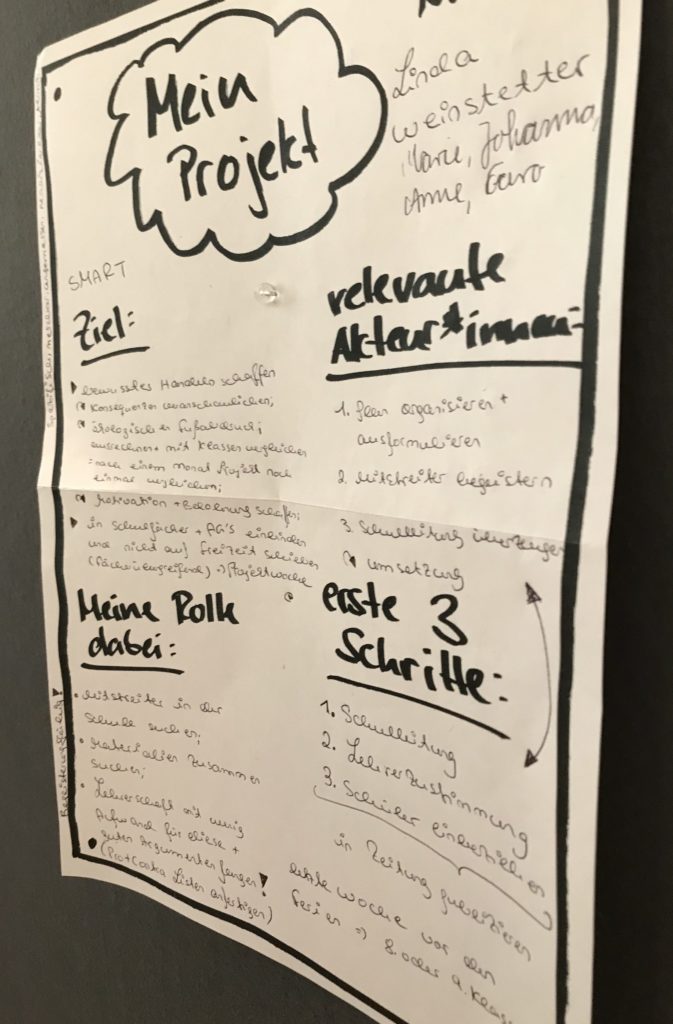 Mein
Projekt
Linda
Weinstetter
Marie, Johanna,
Anne,
SMART
Ziel:
▸ bewusstes Handeln schaffen
Konsequenzen veranschaulichen;
ökologischer Fußabdruck;
ausrechnen + mit Klassen vergleichen
nach einem Monat Projekt noch
einmal vergleichen;
Motivation + Belohnung schaffen;
▸ in Schulfächer + AG's einbinden
und nicht auf Freizeit schieben
(Fächerübergreifend) => Projektwoche
relevante
Akteur*innen:
1. Plan organisieren +
ausformulieren
2. Mitstreiter begeistern
3. Schulleitung überzeugen
Umsetzung
Meine Rolle
dabei:
• Mitstreiter in der
Schule suchen;
• Materialien zusammen
suchen;
• Lehrerschaft mit wenig
Aufwand für diese +
guten Argumenten fangen!
(Pro + Contra Listen anfertigen)
Begeisterungsfähig!
erste 3
Schritte:
1. Schulleitung
2. Lehrerzustimmung
3. Schüler einbeziehen
in Zeitung publizieren
letzte Woche vor den
Ferien => 8. oder 9. Klasse